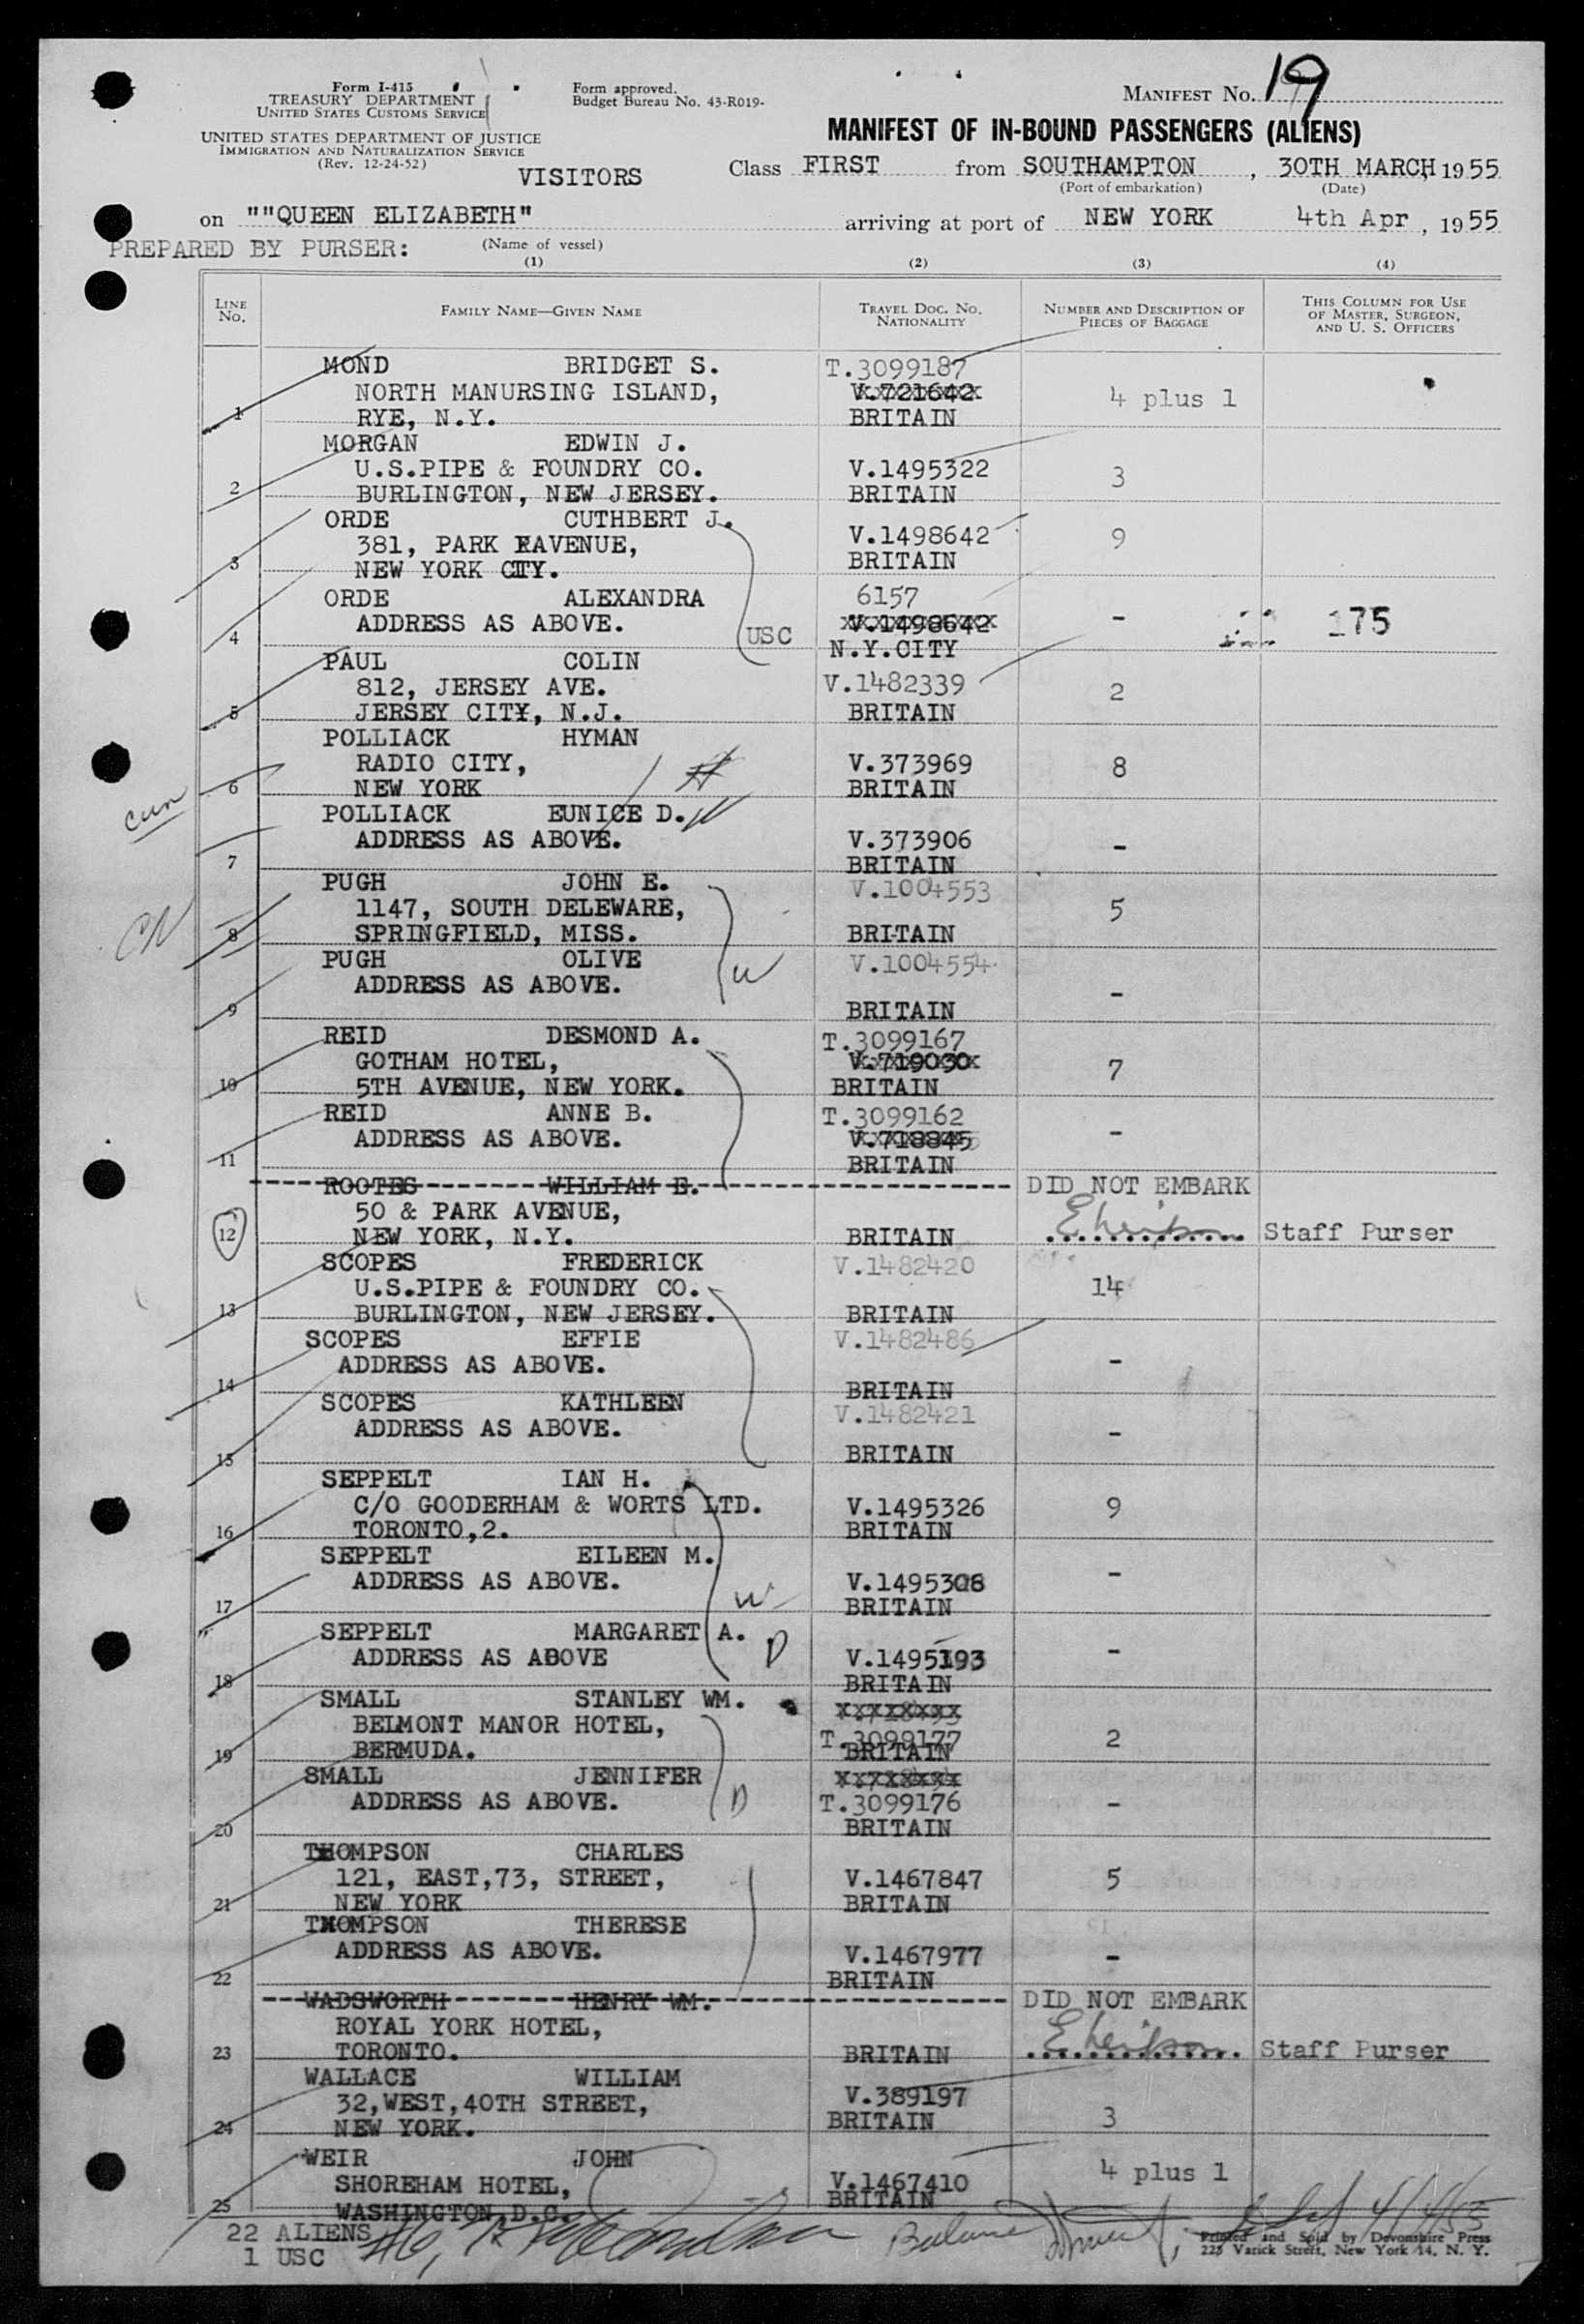 Form I-415
TREASURY DEPARTMENT
UNITED STATES CUSTOMS SERVICE
UNITED STATES DEPARTMENT OF JUSTICE
IMMIGRATION AND NATURALIZATION SERVICE
(Rev. 12-24-52)
Form approved.
Budget Bureau No. 43-R019-
MANIFEST No. 19
MANIFEST OF IN-BOUND PASSENGERS (ALIENS)
VISITORS
Class FIRST from SOUTHAMPTON, 30TH MARCH, 1955
(Port of embarkation) (Date)
on ""QUEEN ELIZABETH" arriving at port of NEW YORK 4th Apr, 1955
PREPARED BY PURSER: (Name of vessel)
(1) (2) (3) (4)
LINE No. FAMILY NAME—GIVEN NAME TRAVEL DOC. No. NATIONALITY NUMBER AND DESCRIPTION OF PIECES OF BAGGAGE THIS COLUMN FOR USE OF MASTER, SURGEON, AND U. S. OFFICERS
MOND BRIDGET S. T.3099187
NORTH MANURSING ISLAND, V.721642 4 plus 1
1 RYE, N.Y. BRITAIN
MORGAN EDWIN J.
U.S.PIPE & FOUNDRY CO. V.1495322 3
2 BURLINGTON, NEW JERSEY. BRITAIN
ORDE CUTHBERT J.
381, PARK EAVENUE, V.1498642 9
3 NEW YORK CITY. BRITAIN
ORDE ALEXANDRA 6157
ADDRESS AS ABOVE. V.1498642 - 175
4 USC N.Y.CITY
PAUL COLIN
812, JERSEY AVE. V.1482339 2
5 JERSEY CITY, N.J. BRITAIN
POLLIACK HYMAN
RADIO CITY, V.373969 8
6 NEW YORK BRITAIN
H
cun
POLLIACK EUNICE D. W
ADDRESS AS ABOVE. V.373906 -
7 BRITAIN
PUGH JOHN E. V.1004553
1147, SOUTH DELEWARE, 5
8 SPRINGFIELD, MISS. BRITAIN
CN
PUGH OLIVE V.1004554
ADDRESS AS ABOVE. W -
9 BRITAIN
REID DESMOND A. T.3099167
GOTHAM HOTEL, V.719030 7
10 5TH AVENUE, NEW YORK. BRITAIN
REID ANNE B. T.3099162
ADDRESS AS ABOVE. V.718845 -
11 BRITAIN
ROOTES WILLIAM E. DID NOT EMBARK
50 & PARK AVENUE,
12 NEW YORK, N.Y. BRITAIN Staff Purser
SCOPES FREDERICK V.1482420
U.S.PIPE & FOUNDRY CO. 14
13 BURLINGTON, NEW JERSEY. BRITAIN
SCOPES EFFIE V.1482486
ADDRESS AS ABOVE. -
14 BRITAIN
SCOPES KATHLEEN V.1482421
ADDRESS AS ABOVE. -
15 BRITAIN
SEPPELT IAN H.
C/O GOODERHAM & WORTS LTD. V.1495326 9
16 TORONTO,2. BRITAIN
SEPPELT EILEEN M.
ADDRESS AS ABOVE. V.1495308 -
17 W BRITAIN
SEPPELT MARGARET A. D
ADDRESS AS ABOVE V.1495193 -
18 BRITAIN
SMALL STANLEY WM.
BELMONT MANOR HOTEL, T.3099177 2
19 BERMUDA. BRITAIN
SMALL JENNIFER
ADDRESS AS ABOVE. D T.3099176 -
20 BRITAIN
THOMPSON CHARLES
121, EAST,73, STREET, V.1467847 5
21 NEW YORK BRITAIN
THOMPSON THERESE
ADDRESS AS ABOVE. V.1467977 -
22 BRITAIN
WADSWORTH HENRY WM. DID NOT EMBARK
ROYAL YORK HOTEL,
23 TORONTO. BRITAIN Staff Purser
WALLACE WILLIAM V.389197
32,WEST,40TH STREET, BRITAIN 3
24 NEW YORK.
WEIR JOHN 4 plus 1
SHOREHAM HOTEL, V.1467410
25 WASHINGTON,D.C. BRITAIN
22 ALIENS
1 USC
4/4/55
Printed and Sold by Devonshire Press
225 Varick Street, New York 14, N. Y.